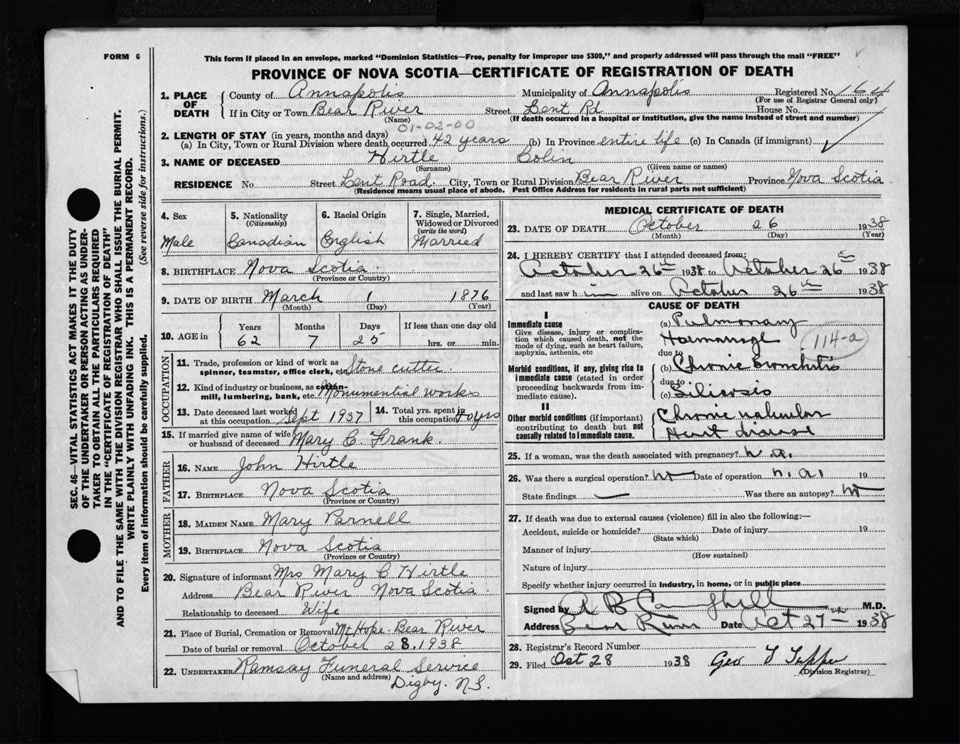 FORM 6
This form if placed in an envelope, marked "Dominion Statistics—Free, penalty for improper use $300," and properly addressed will pass through the mail "FREE"
PROVINCE OF NOVA SCOTIA—CERTIFICATE OF REGISTRATION OF DEATH
SEC. 46—VITAL STATISTICS ACT MAKES IT THE DUTY
OF THE UNDERTAKER OR PERSON ACTING AS UNDER-
TAKER TO OBTAIN ALL THE PARTICULARS REQUIRED
IN THE "CERTIFICATE OF REGISTRATION OF DEATH"
AND TO FILE THE SAME WITH THE DIVISION REGISTRAR WHO SHALL ISSUE THE BURIAL PERMIT.
WRITE PLAINLY WITH UNFADING INK. THIS IS A PERMANENT RECORD.
Every item of information should be carefully supplied. (See reverse side for instructions.)
1. PLACE OF DEATH
County of Annapolis Municipality of Annapolis Registered No. 164
(For use of Registrar General only)
If in City or Town Bear River Street Lent Rd House No.
(Name) (If death occurred in a hospital or institution, give the name instead of street and number)
01-02-00
2. LENGTH OF STAY (in years, months and days)
(a) In City, Town or Rural Division where death occurred 42 years (b) In Province entire life (c) In Canada (if immigrant)
3. NAME OF DECEASED Hirtle Colin
(Surname) (Given name or names)
RESIDENCE No. Street Lent Road. City, Town or Rural Division Bear River Province Nova Scotia
(Residence means usual place of abode. Post Office Address for residents in rural parts not sufficient)
4. Sex Male
5. Nationality (Citizenship) Canadian
6. Racial Origin English
7. Single, Married, Widowed or Divorced (write the word) Married
8. BIRTHPLACE Nova Scotia
(Province or Country)
9. DATE OF BIRTH March 1 1876
(Month) (Day) (Year)
10. AGE in Years Months Days If less than one day old
62 7 25 hrs. or min.
OCCUPATION
11. Trade, profession or kind of work as spinner, teamster, office clerk, etc. Stone cutter
12. Kind of industry or business, as cotton-mill, lumbering, bank, etc. Monumential works
13. Date deceased last worked at this occupation Sept 1937 14. Total yrs. spent in this occupation 40 yrs
15. If married give name of wife or husband of deceased Mary C. Frank.
FATHER
16. NAME John Hirtle
17. BIRTHPLACE Nova Scotia
(Province or Country)
MOTHER
18. MAIDEN NAME Mary Parnell
19. BIRTHPLACE Nova Scotia
(Province or Country)
20. Signature of informant Mrs Mary C Hirtle
Address Bear River Nova Scotia.
Relationship to deceased Wife
21. Place of Burial, Cremation or Removal Mt Hope - Bear River
Date of burial or removal October 28. 1938
22. UNDERTAKER Ramsay Funeral Service
(Name and address) Digby. N.S.
MEDICAL CERTIFICATE OF DEATH
23. DATE OF DEATH October 26 1938
(Month) (Day) (Year)
24. I HEREBY CERTIFY that I attended deceased from:
October 26th 1938 to October 26th 1938
and last saw him alive on October 26th 1938
CAUSE OF DEATH
I
Immediate cause
Give disease, injury or complication which caused death, not the mode of dying, such as heart failure, asphyxia, asthenia, etc
(a) Pulmonary
Haemorrage
114-a
due to
Morbid conditions, if any, giving rise to immediate cause (stated in order proceeding backwards from immediate cause).
(b) Chronic Bronchitis
due to
(c) Silicosis
II
Other morbid conditions (if important) contributing to death but not causally related to immediate cause.
Chronic valvular
Heart disease
25. If a woman, was the death associated with pregnancy? n.a.
26. Was there a surgical operation? no Date of operation n.a. 19
State findings — Was there an autopsy? no
27. If death was due to external causes (violence) fill in also the following:—
Accident, suicide or homicide? Date of injury 19
(State which)
Manner of injury
(How sustained)
Nature of injury
Specify whether injury occurred in industry, in home, or in public place
Signed by A B Campbell M.D.
Address Bear River Date Oct 27th 1938
28. Registrar's Record Number
29. Filed Oct 28 1938 Geo T Tupper
(Division Registrar)